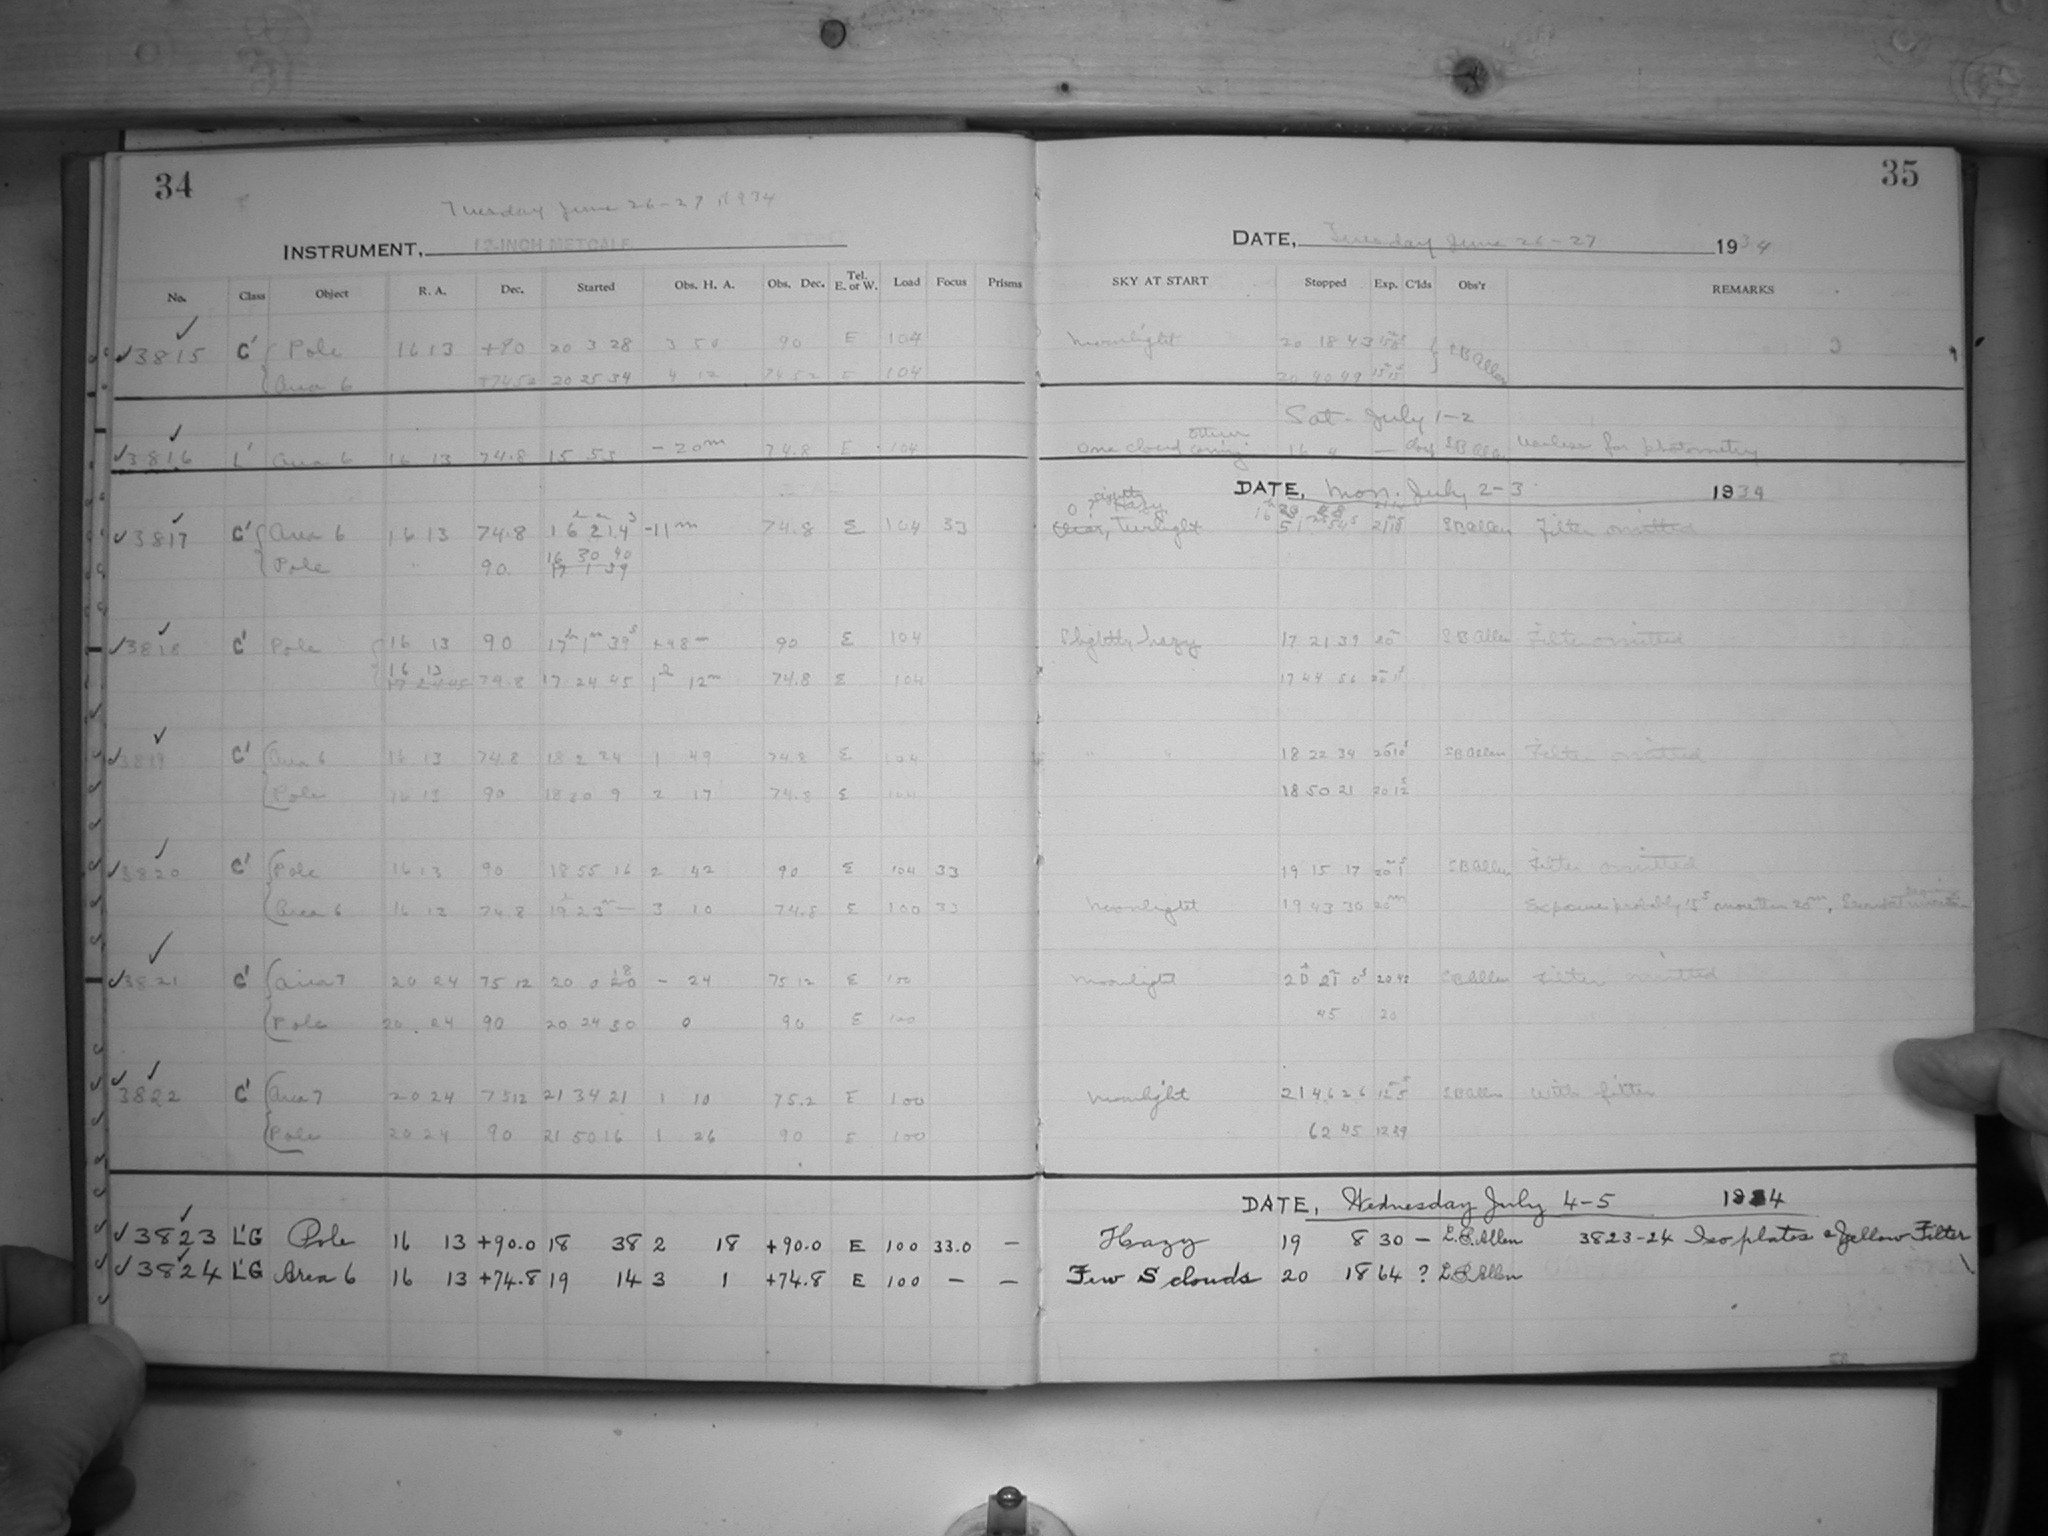 34
Tuesday June 26-27 1934
INSTRUMENT, 12-INCH METCALF
No. Class Object R. A. Dec. Started Obs. H. A. Obs. Dec. Tel. E. or W. Load Focus Prisms
3815 C' Pole 16 13 +90 20 3 28 3 50 90 E 104
Area 6 +7452 20 25 34 4 12 7452 E 104
3816 L' Area 6 16 13 74.8 15 53 -20m 74.8 E 104
3817 C' Area 6 16 13 74.8 16 2 14 -11m 74.8 E 104 33
Pole 90. 16 30 40
17 1 39
3818 C' Pole 16 13 90 17h 1m 39s +48m 90 E 104
16 13 74.8 17 24 45 1h 12m 74.8 E 104
3819 C' Area 6 16 13 74.8 18 2 24 1 49 74.8 E 104
Pole 16 13 90 18 30 9 2 17 74.8 E 104
3820 C' Pole 16 13 90 18 55 16 2 42 90 E 104 33
Area 6 16 13 74.8 19h 23m — 3 10 74.8 E 100 33
3821 C' Area 7 20 24 75 12 20 0 18 - 24 75 12 E 100
Pole 20 24 90 20 24 30 0 90 E 100
3822 C' Area 7 20 24 7512 21 34 21 1 10 75.2 E 100
Pole 20 24 90 21 50 16 1 26 90 E 100
3823 L'G Pole 16 13 +90.0 18 38 2 18 +90.0 E 100 33.0 —
3824 L'G Area 6 16 13 +74.8 19 14 3 1 +74.8 E 100 — —
35
DATE, Tuesday June 26-27 1934
SKY AT START Stopped Exp. C'lds Obs'r REMARKS
Moonlight 20 18 43 LB Allen
20 40 49
Sat. July 1-2
One cloud others coming 16 4 — LB Allen Useless for photometry
DATE, Mon. July 2-3 1934
slightly Hazy
Clear, Twilight LB Allen Filter omitted
Slightly hazy 17 21 39 20m LB Allen Filter omitted
17 44 56
" " 18 22 34 20m10s LB Allen Filter omitted
18 50 21 20 12s
19 15 17 20m 1s LB Allen Filter omitted
Moonlight 19 43 30 20m Exposure probably 15s more than 20m,
Moonlight 20 21 0s 20 42 LB Allen Filter omitted
45 20
Moonlight 21 46 26 12m 5s LB Allen With filter
62 45 12 29
DATE, Wednesday July 4-5 1934
Hazy 19 8 30 — L.B. Allen 3823-24 Iso plates & Yellow Filter
Few S clouds 20 18 64 ? L.B. Allen